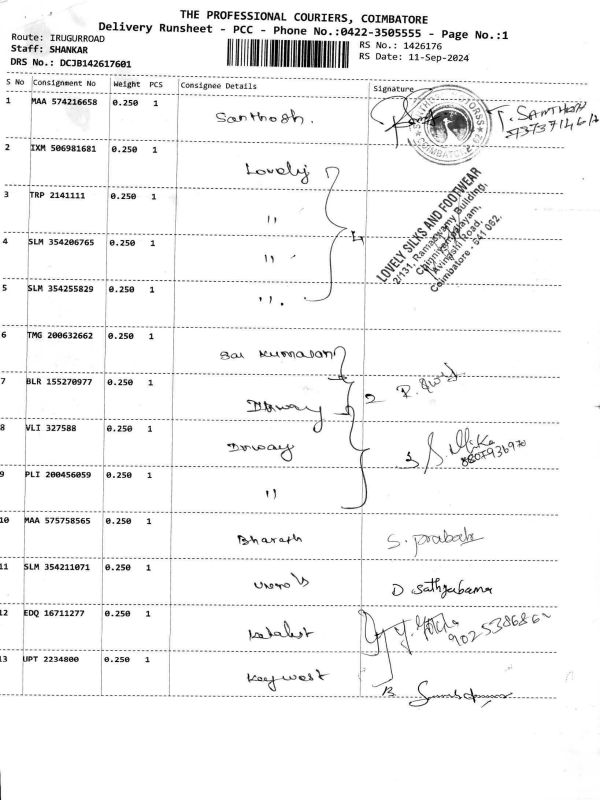 THE PROFESSIONAL COURIERS, COIMBATORE
Delivery Runsheet - PCC - Phone No.:0422-3505555 - Page No.:1
Route: IRUGURROAD
RS No.: 1426176
Staff: SHANKAR
RS Date: 11-Sep-2024
DRS No.: DCJB142617601
S No Consignment No Weight PCS Consignee Details Signature
1 MAA 574216658 0.250 1 Santhosh.
2 IXM 506981681 0.250 1 Lovely
3 TRP 2141111 0.250 1 "
4 SLM 354206765 0.250 1 " 4
LOVELY SILKS AND FOOTWEAR
2/131, Ramaswamy Building,
Chinniyampalayam,
Avinashi Road,
Coimbatore - 641 062.
5 SLM 354255829 0.250 1 ".
6 TMG 200632662 0.250 1 Sai Kumaran
7 BLR 155270977 0.250 1 2
8 VLI 327588 0.250 1 3
9 PLI 200456059 0.250 1 "
10 MAA 575758565 0.250 1 Bharath S. Prabath
11 SLM 354211071 0.250 1 D Sathyabama
12 EDQ 16711277 0.250 1 Katalist
13 UPT 2234800 0.250 1 Keywest